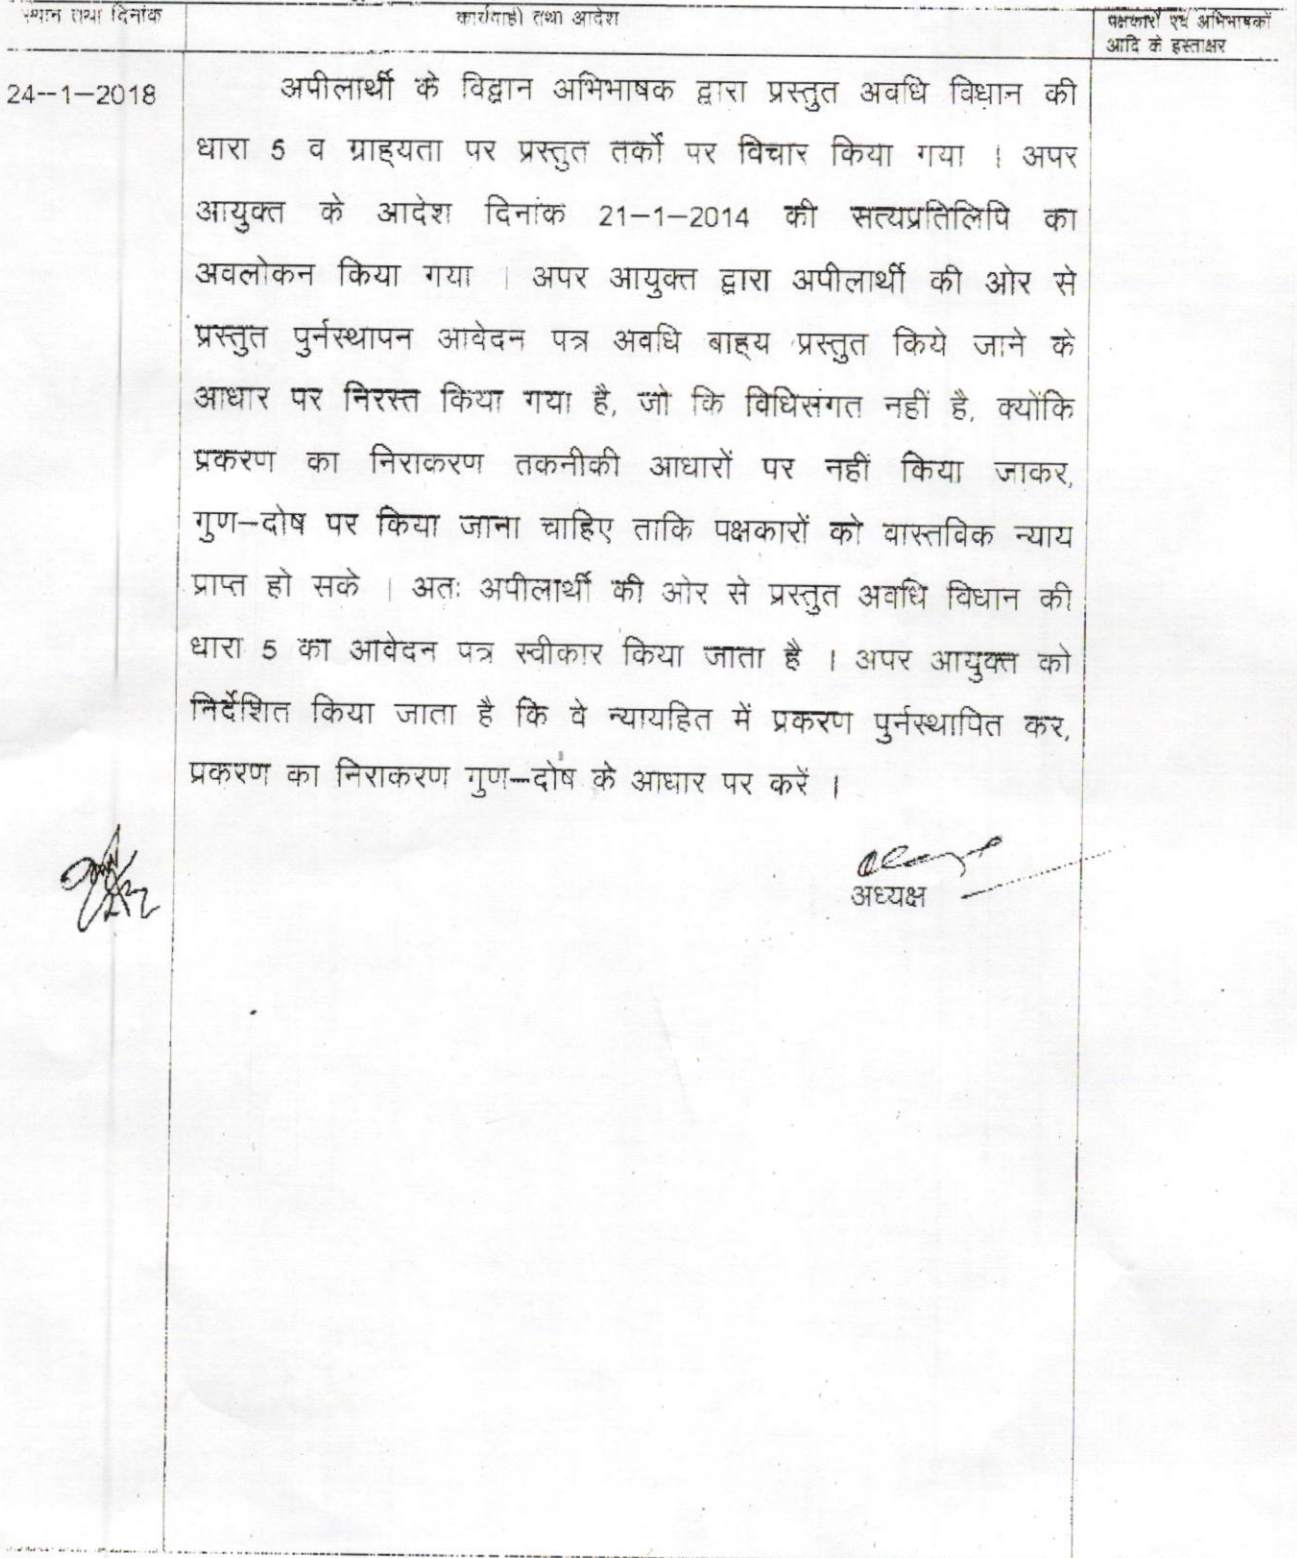 स्थान तथा दिनांक
कार्यवाही तथा आदेश
पक्षकारों एवं अभिभाषकों
आदि के हस्ताक्षर
24--1-2018
अपीलार्थी के विद्वान अभिभाषक द्वारा प्रस्तुत अवधि विधान की
धारा 5 व ग्राह्यता पर प्रस्तुत तर्कों पर विचार किया गया । अपर
आयुक्त के आदेश दिनांक 21-1-2014 की सत्यप्रतिलिपि का
अवलोकन किया गया । अपर आयुक्त द्वारा अपीलार्थी की ओर से
प्रस्तुत पुर्नस्थापन आवेदन पत्र अवधि बाह्य प्रस्तुत किये जाने के
आधार पर निरस्त किया गया है, जो कि विधिसंगत नहीं है, क्योंकि
प्रकरण का निराकरण तकनीकी आधारों पर नहीं किया जाकर,
गुण-दोष पर किया जाना चाहिए ताकि पक्षकारों को वास्तविक न्याय
प्राप्त हो सके । अतः अपीलार्थी की ओर से प्रस्तुत अवधि विधान की
धारा 5 का आवेदन पत्र स्वीकार किया जाता है । अपर आयुक्त को
निर्देशित किया जाता है कि वे न्यायहित में प्रकरण पुर्नस्थापित कर,
प्रकरण का निराकरण गुण-दोष के आधार पर करें ।
अध्यक्ष